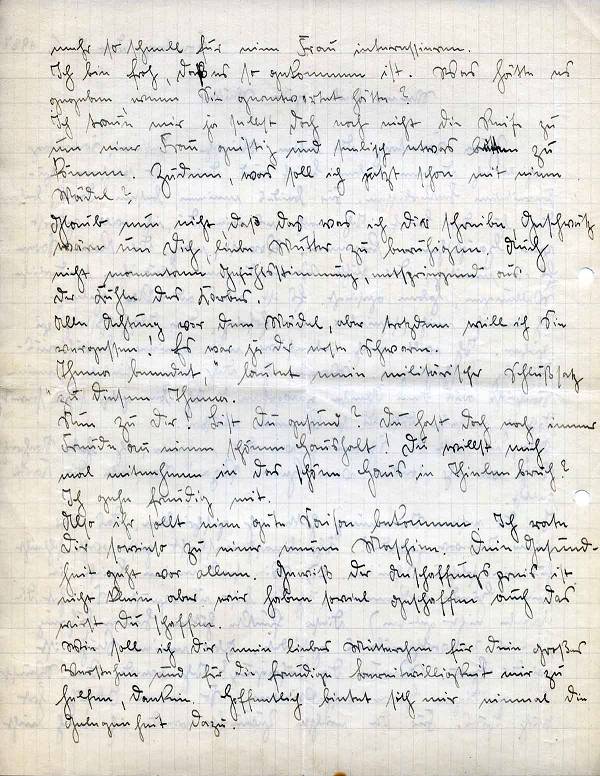 mehr so schnell für eine Frau interessieren.
Ich bin froh, daß es so gekommen ist. Was hätte es
gegeben, wenn Sie geantwortet hätte?
Ich traue mir ja selbst doch noch nicht die Reife zu
um einer Frau geistig und seelisch etwas bieten zu
können. Zudem, was soll ich jetzt schon mit einem
Mädel?
Glaub nun nicht daß das was ich dir schreibe, Geschwätz
wäre um Dich, liebe Mutter zu beruhigen. Auch
nicht momentane Gefühlsstimmung, entspringend aus
der Kühle des Korbes.
Alle Achtung vor dem Mädel, aber trotzdem will ich Sie
vergessen! Es war ja der erste Schwarm.
Thema beendet," lautet mein militärischer Schlußsatz
zu diesem Thema.
Nun zu dir. Bist Du gesund? Du hast doch noch immer
Freude an einem schönen Haushalt! Du willst mich
mal mitnehmen in das schöne Haus in
Ich gehe freudig mit.
Also ihr sollt eine gute Saison bekommen. Ich rate
Dir sowieso zu einer neuen Maschine. Dein Gesund-
heit geht vor allem. Gewiß der Anschaffungspreis ist
nicht klein, aber wir haben soviel geschaffen auch das
wirst Du schaffen.
Wie soll ich Dir, mein liebes Mütterchen für Dein großes
Verstehen und für die freudige Bereitwilligkeit mir zu
helfen, danken. Hoffentlich bietet sich mir einmal die
Gelegenheit dazu.